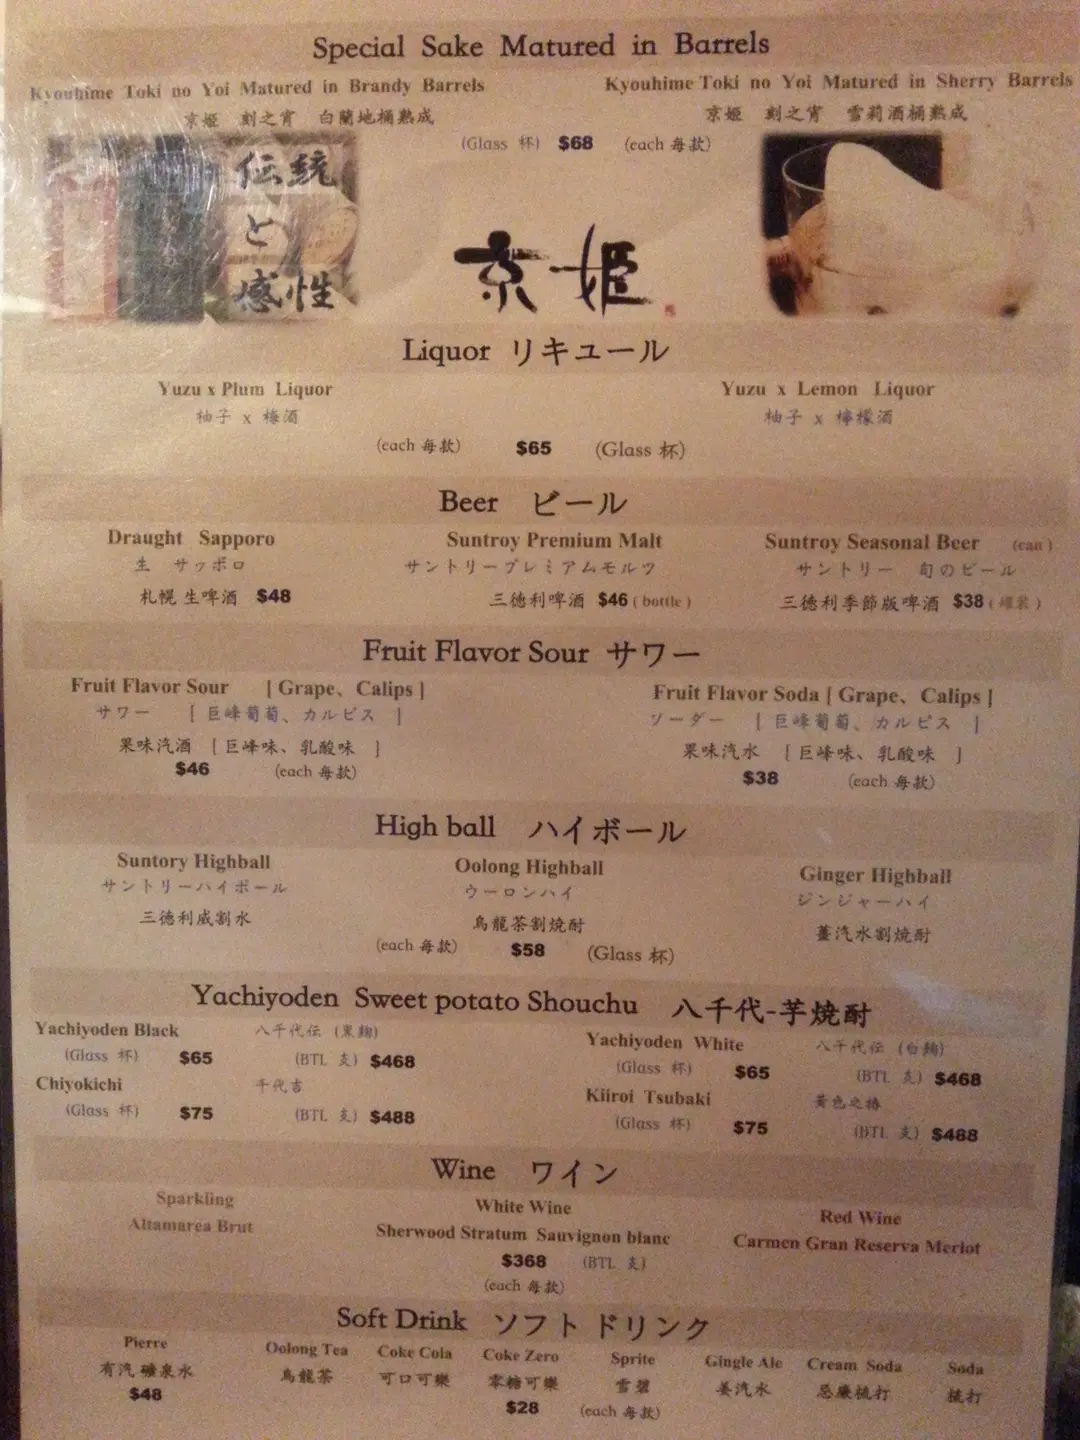 Special Sake Matured in Barrels
Kyouhime Toki no Yoi Matured in Brandy Barrels
京姫 刻之宵 白蘭地桶熟成
Kyouhime Toki no Yoi Matured in Sherry Barrels
京姫 刻之宵 雪莉酒桶熟成
(Glass 杯) $68 (each 每款)
伝統
と
感性
京姫
Liquor リキュール
Yuzu x Plum Liquor
柚子 x 梅酒
Yuzu x Lemon Liquor
柚子 x 檸檬酒
(each 每款) $65 (Glass 杯)
Beer ビール
Draught Sapporo
生 サッポロ
札幌 生啤酒 $48
Suntroy Premium Malt
サントリープレミアムモルツ
三德利啤酒 $46 ( bottle )
Suntroy Seasonal Beer (can )
サントリー 旬のビール
三德利季節版啤酒 $38 ( 罐裝 )
Fruit Flavor Sour サワー
Fruit Flavor Sour [ Grape、Calips ]
サワー [ 巨峰葡萄、カルピス ]
果味汽酒 [ 巨峰味、乳酸味 ]
$46 (each 每款)
Fruit Flavor Soda [ Grape、Calips ]
ソーダー [ 巨峰葡萄、カルピス ]
果味汽水 [ 巨峰味、乳酸味 ]
$38 (each 每款)
High ball ハイボール
Suntory Highball
サントリーハイボール
三德利威割水
Oolong Highball
ウーロンハイ
烏龍茶割焼酎
Ginger Highball
ジンジャーハイ
薑汽水割焼酎
(each 每款) $58 (Glass 杯)
Yachiyoden Sweet potato Shouchu 八千代-芋焼酎
Yachiyoden Black 八千代伝 (黒麹)
(Glass 杯) $65 (BTL 支) $468
Chiyokichi 千代吉
(Glass 杯) $75 (BTL 支) $488
Yachiyoden White 八千代伝 (白麹)
(Glass 杯) $65 (BTL 支) $468
Kiiroi Tsubaki 黄色之椿
(Glass 杯) $75 (BTL 支) $488
Wine ワイン
Sparkling
Altamarea Brut
White Wine
Sherwood Stratum Sauvignon blanc
Red Wine
Carmen Gran Reserva Merlot
$368 (BTL 支)
(each 每款)
Soft Drink ソフトドリンク
Pierre
有汽 礦泉水
$48
Oolong Tea
烏龍茶
Coke Cola
可口可樂
Coke Zero
零糖可樂
Sprite
雪碧
Gingle Ale
姜汽水
Cream Soda
忌廉梳打
Soda
梳打
$28 (each 每款)